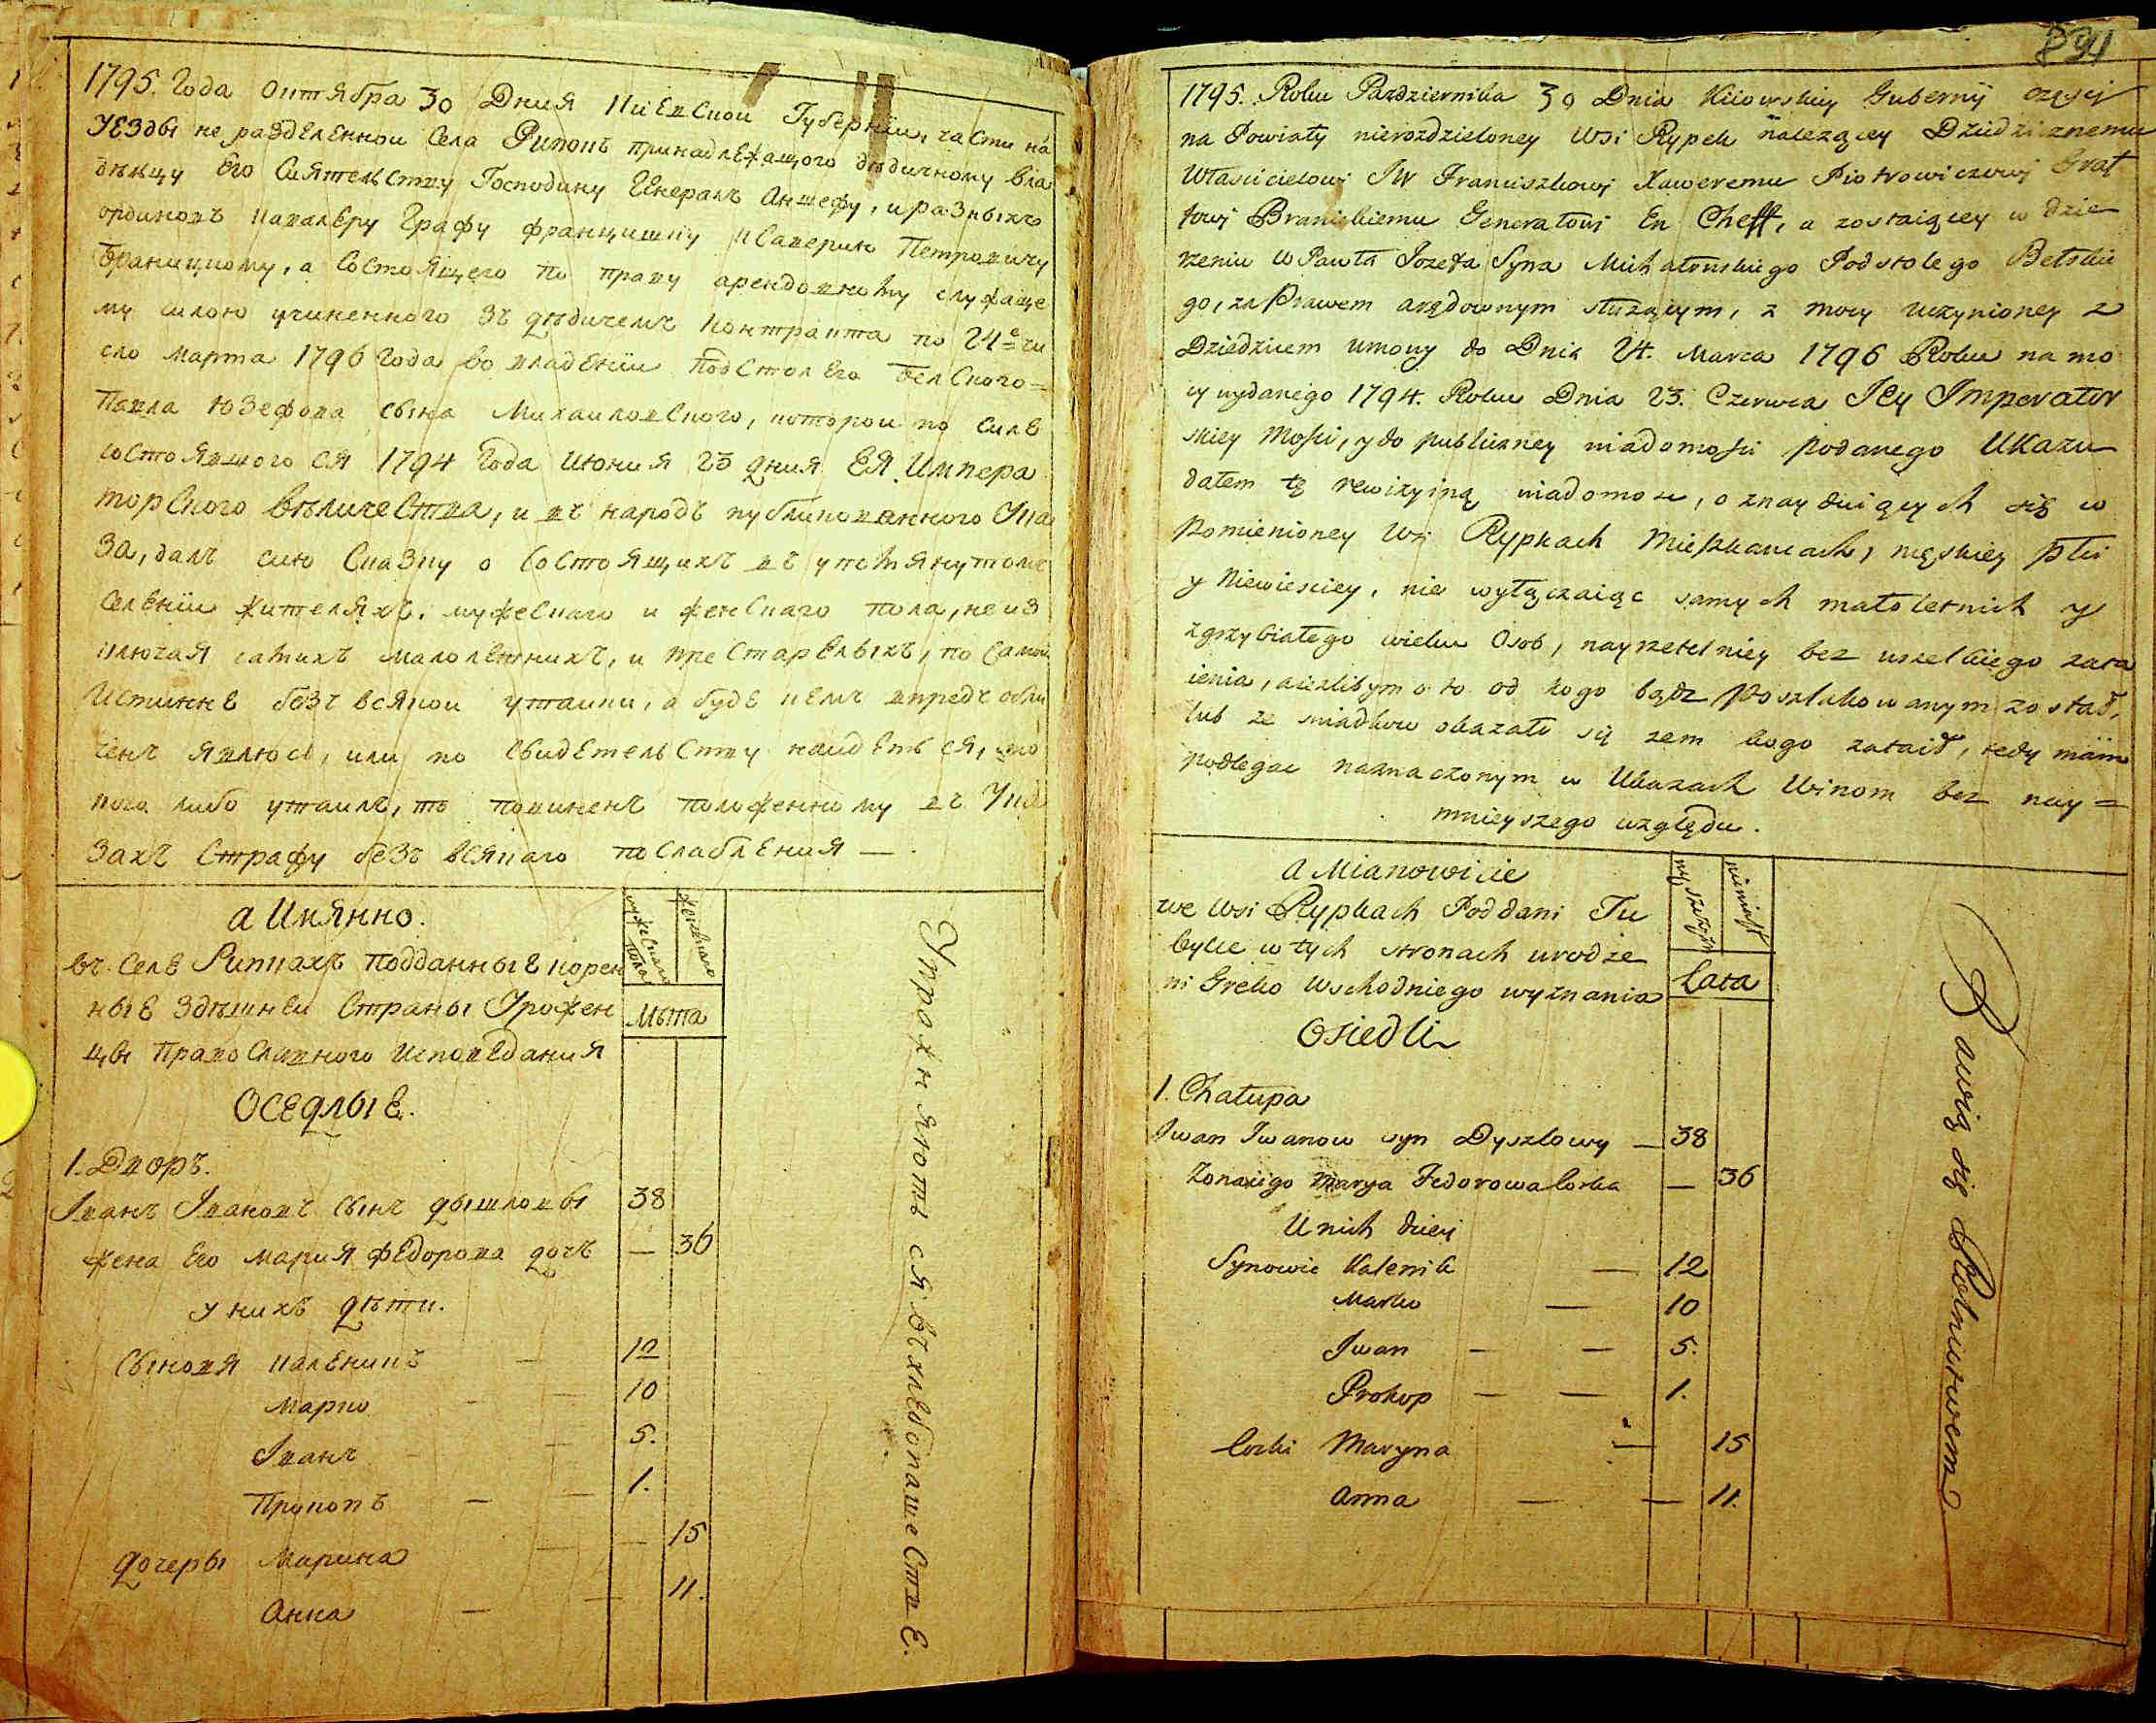 1795. Года Октября 30 Дния Киевской Губернїи, части на
уезды не разделенной села Рипокъ принадлежащого дѣдичному вла
дѣлцу его Сиятелству Господину Генералъ Аншефу, и разныхъ
ординовъ кавалеру Графу францишку Ксаверию Петровичу
Браницкому, а состоящего по праву арендовному служаще
му силою учиненного зъ дѣдичемъ контракта по 24е чи
сло марта 1796 года во владенїи подстолего белского
Павла Юзефова сына Михаловского, которой по силе
состоявшогося 1794 Года июния 23 дния ЕЯ Импера
торского Вѣличества, и въ народъ публикованного Ука
за, далъ сию сказку о состоящихъ въ упомянутомъ
селенїи жителяхъ, мужеского и женского пола, не из
ключая самихъ малолетнихъ, и престарелыхъ, по самой
истинне безъ всякой утайки, а буде кемъ впредъ обли
ченъ явлюсь, или по свидетельству найдеться, что
кого либо утаилъ, то повиненъ положенному въ Ука
захъ Страфу безъ всякаго послабления —
а Имянно.
въ селе Рипкахъ подданные корен
ные здѣшней Страны Урожен
цы Православного исповедания
ОСЕДЛЫЕ.
мужеского пола
женского
лѣта
1. Дворъ.
Іванъ Івановъ сынъ дышловы 38
жена его мария федорова дочъ — 36
у нихъ дѣти.
Сыновя каленикъ — 12
марко — 10
Іванъ — 5.
Прокопъ — — 1.
дочеры Марина — — 15
Анна — — 11.
Упражняються въ хлебопашестве.
1795. Roku Pazdziernika 30 Dnia Kiiowskiey Gubernij częscj
na Powiaty nierozdzieloney Wsi Rypek nalezącey Dziedzicznemu
Włascicielowj JW Franciszkowj Xaweremu Piotrowiczowj Graf
fowj Branickiemu Generałowj En Cheff, a zostaiącey w dzie
rzeniu W Pawła Jozefa Syna Michałowskiego Podstolego Bełskie
go, za Prawem arędownym służącym, z mocy uczynioney z
Dziedzicem umowy do Dnia 24. Marca 1796 Roku na mo
cy wydanego 1794. Roku Dnia 23. Czerwca Jey Imperator
skiey Mości, y do publiczney wiadomości podanego Ukazu
dałem tę rewizyiną wiadomosc, o znayduiących się w
Pomienioney Wsi Rypkach Mieszkancach, męskiey płci
y Niewiesciey, nie wyłączaiąc samych małoletnich y
zgrzybiałego wieku Osob, nayrzetelniey bez wszelkiego zata
ienia, a iezlibym o to od kogo bądz Poszlakowanym został,
lub ze swiadkow okazało się zem kogo zataił, tedy mam
podlegac naznaczonym w Ukazach Winom bez nay=
mnieyszego względu.
a Mianowicie
we Wsi Rypkach Poddani Tu
bylce w tych stronach urodze
ni Greko Wschodniego wyznania
Osiedli
męszczyzn
niewiast
Lata
1. Chałupa
Iwan Iwanow syn Dyszlowy — 38
Zona iego Marya Fedorowa Corka — 36
U nich dzieci
Synowie Kalenik — 12
Marko — 10
Iwan — — 5.
Prokop — — 1.
Corki Maryna — 15
Anna — — 11.
Bawią się Rolnictwem